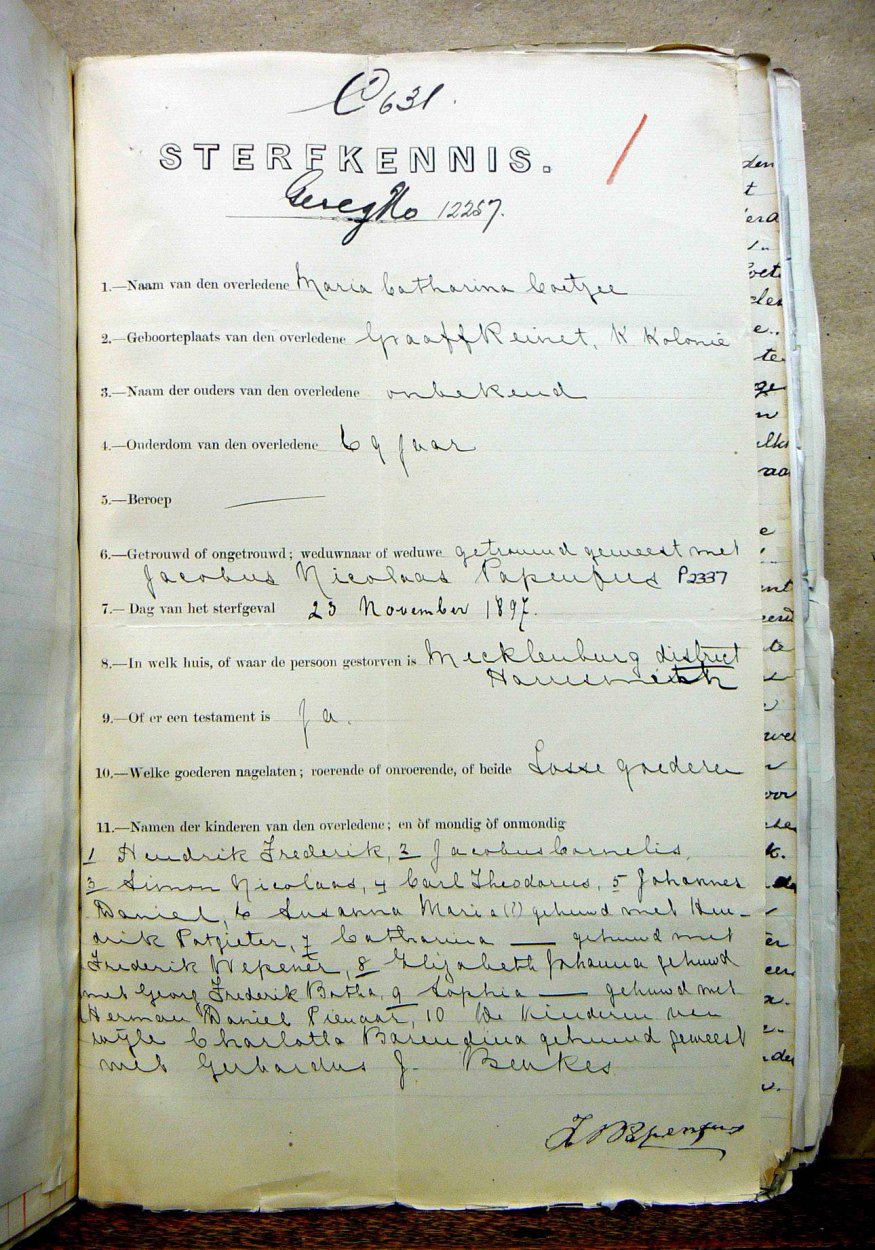 C 631.
STERFKENNIS.
Gereg No 12257.
1.—Naam van den overledene Maria Catharina Coetzee
2.—Geboorteplaats van den overledene Graaff Reinet, K Kolonie
3.—Naam der ouders van den overledene onbekend
4.—Ouderdom van den overledene 69 jaar
5.—Beroep
6.—Getrouwd of ongetrouwd; weduwnaar of weduwe getrouwd geweest met
Jacobus Nicolaas Papenfus P2337
7.—Dag van het sterfgeval 23 November 1897.
8.—In welk huis, of waar de persoon gestorven is Mecklenburg district
Harrismith
9.—Of er een testament is Ja.
10.—Welke goederen nagelaten; roerende of onroerende, of beide Losse goederen
11.—Namen der kinderen van den overledene; en òf mondig òf onmondig
1 Hendrik Frederik, 2 Jacobus Cornelis,
3 Simon Nicolaas, 4 Carl Theodorus, 5 Johannes
Daniel, 6 Susanna Maria (?) gehuwd met Hen-
drik Potgieter, 7 Catharina — gehuwd met
Frederik Wepener, 8 Elizabeth Johanna gehuwd
met Georg Frederik Botha, 9 Sophia — gehuwd met
Herman Daniel Pienaar, 10 De Kinderen van
wyle Charlotta Barendina gehuwd geweest
met Gerhardus J. Beukes